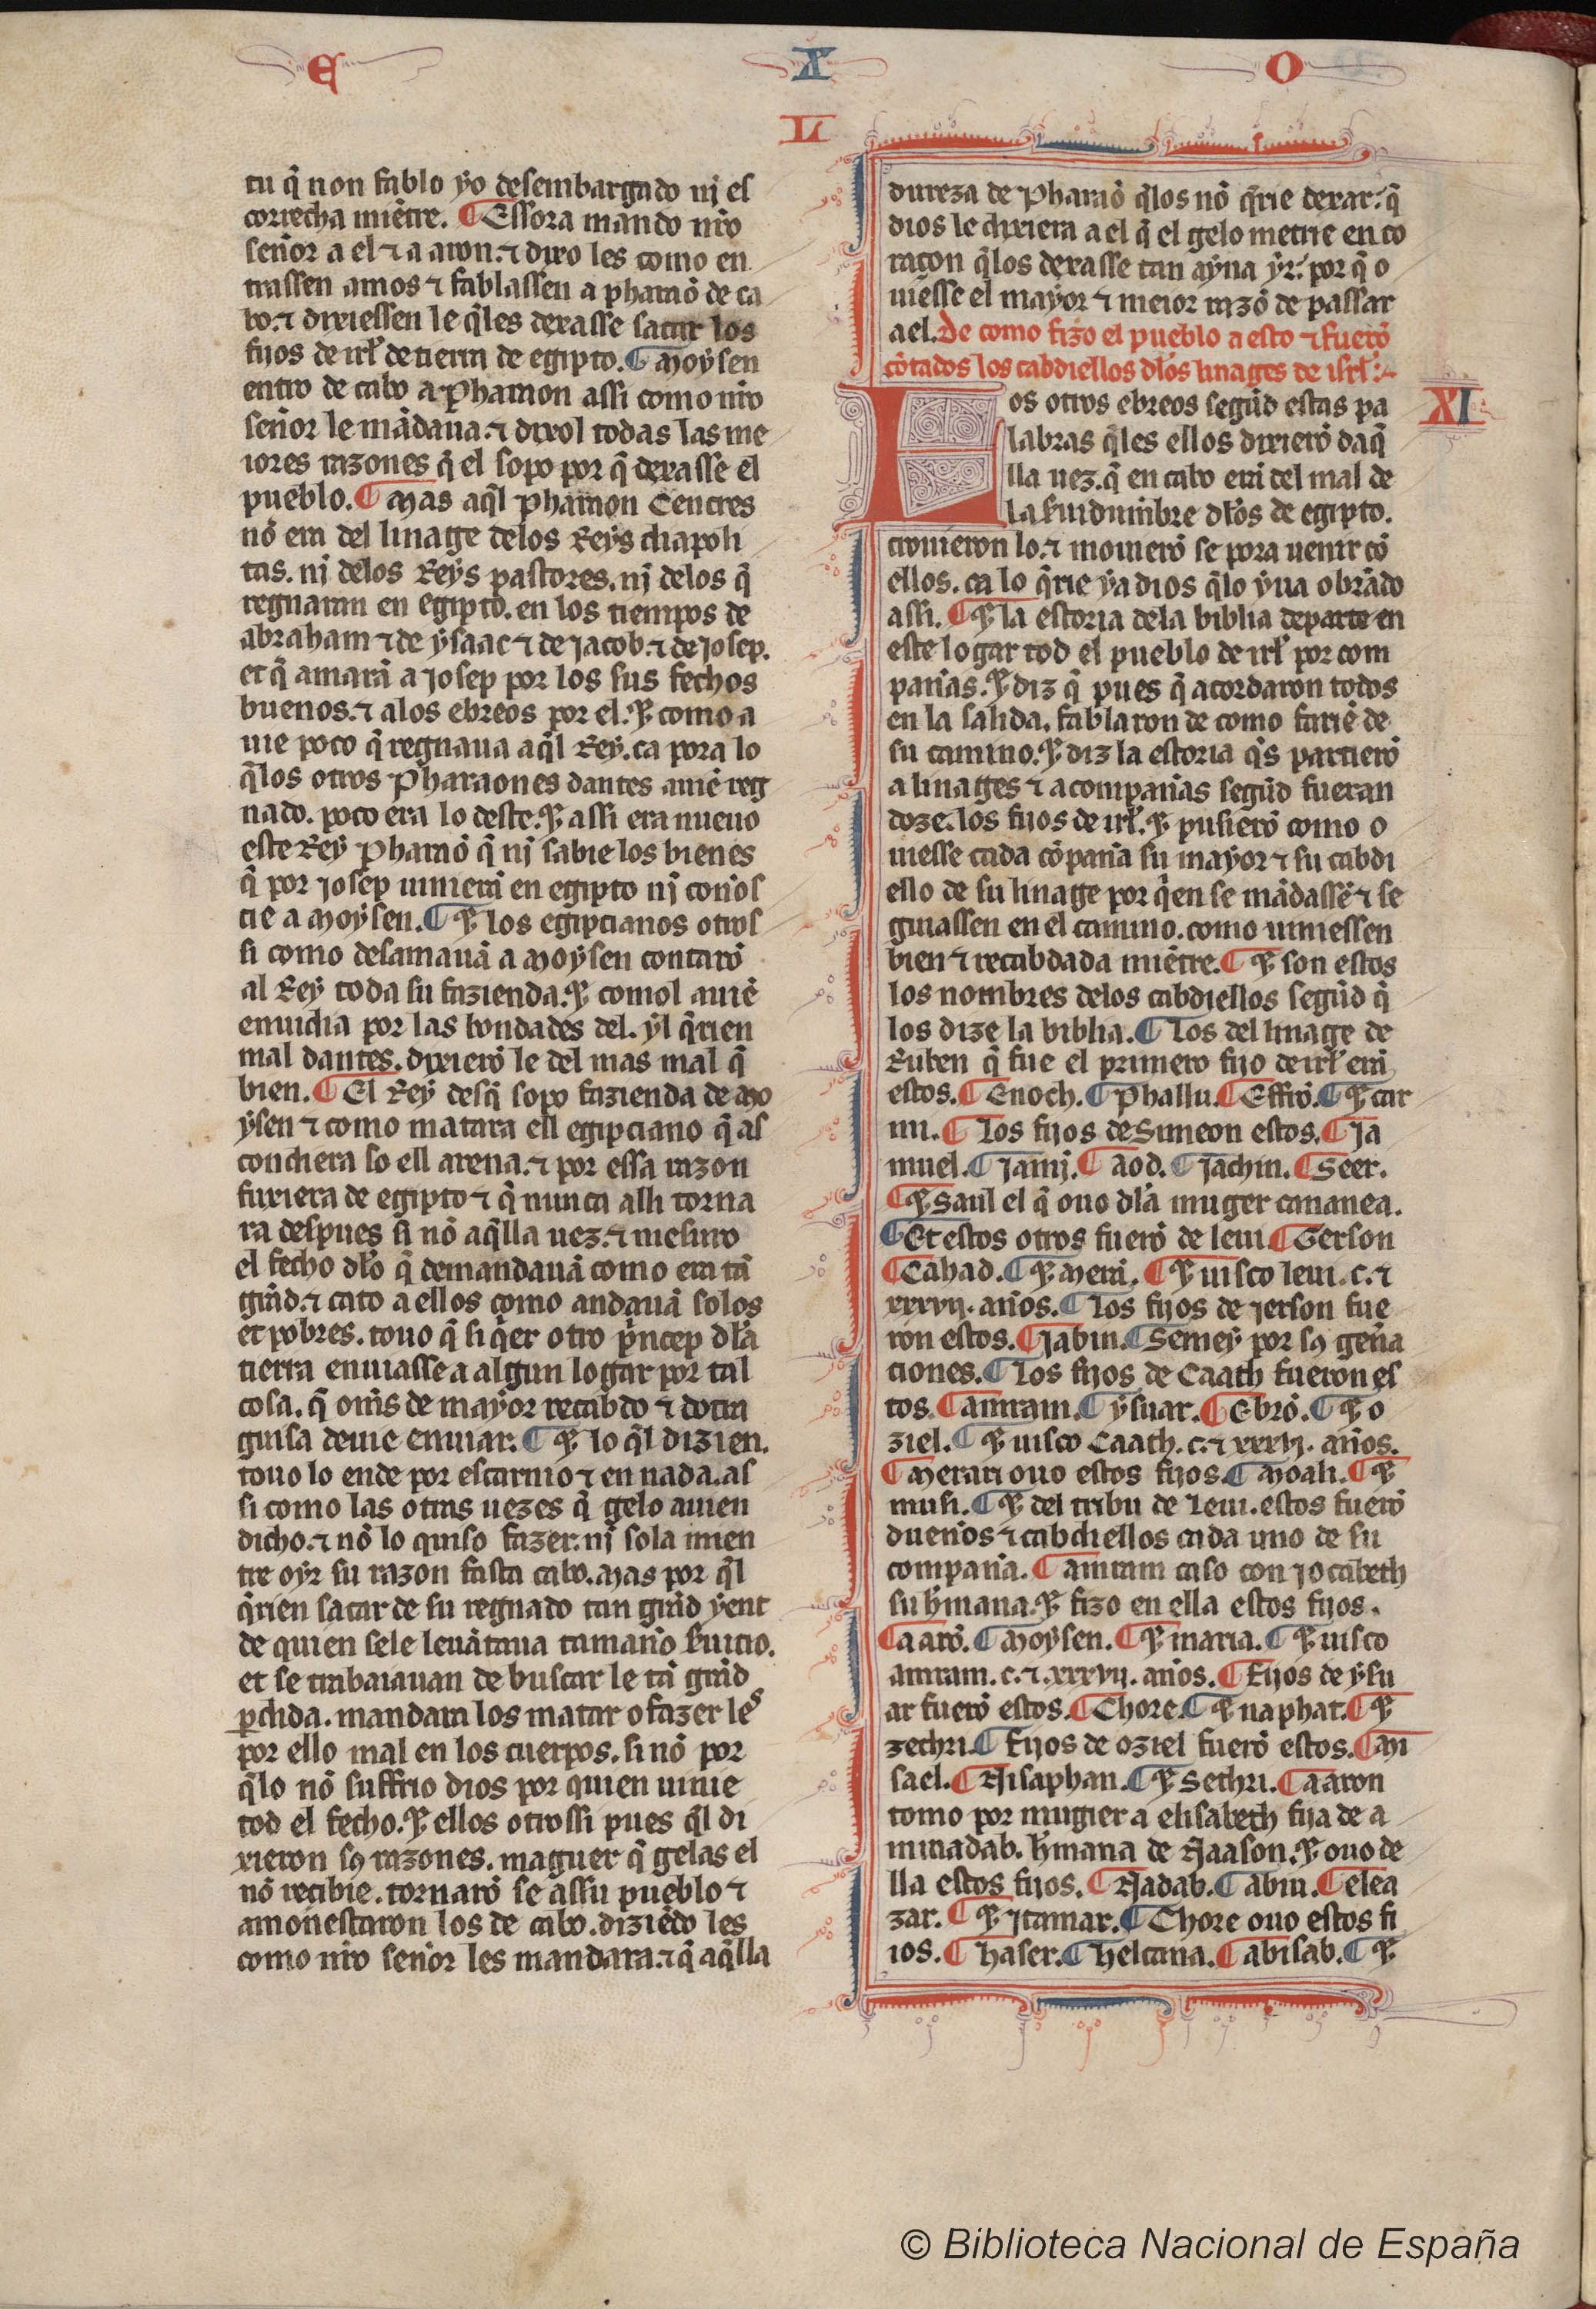 E X O
L
tu q̃ non fablo yo desembargado nj es
correcha miẽtre. ¶ Essora mando nr̃o
señor a el ⁊ a aron. ⁊ dixo les como en
trassen amos ⁊ fablassen a pharaõ de ca
bo. ⁊ dixiessen le q̃les dexasse sacar los
fijos de irł de tierra de egipto. ¶ Moysen
entro de cabo a Pharaon assi como nr̃o
señor le mãdaua. ⁊ dixol todas las me
iores razones q̃ el sopo por q̃ dexasse el
pueblo. ¶ Mas aq̃l pharaon Cencres
nõ era del linage delos Reys diapoli
tas. nj delos Reys pastores. nj delos q̃
regnaran en egipto. en los tiempos de
abraham ⁊ de ysaac ⁊ de Jacob. ⁊ de Josep.
et q̃ amarã a Josep por los sus fechos
buenos. ⁊ alos ebreos por el. E como a
uie poco q̃ regnaua aq̃l Rey. ca pora lo
q̃los otros Pharaones dantes auiẽ reg
nado. poco era lo deste. E assi era nueuo
este Rey Pharaõ q̃ nj sabie los bienes
q̃ por Josep uinieran en egipto nj conos
cie a Moysen. ¶ E los egipcianos otros
si como desamauã a Moysen contarõ
al Rey toda su fazienda. E comol auiẽ
enuidia por las bondades del. yl q̃rien
mal dantes. dixierõ le del mas mal q̃
bien. ¶ El Rey desq̃ sopo fazienda de mo
ysen ⁊ como matara ell egipciano q̃ as
condiera so ell arena. ⁊ por essa razon
fuxiera de egipto ⁊ q̃ nunca alli torna
ra despues si nõ aq̃lla uez. ⁊ mesuro
el fecho dłło q̃ demandauã como era tã
grãd. ⁊ cato a ellos como andauã solos
et pobres. touo q̃ si q̃er otro prĩncep dła
tierra enuiasse a algun logar por tal
cosa. q̃ om̃s de mayor recabdo ⁊ dotra
guisa deuie enuiar. ¶ E lo q̃l dizien.
touo lo ende por escarnio ⁊ en nada. as
si como las otras uezes q̃ gelo auien
dicho. ⁊ nõ lo quiso fazer. nj sola mien
tre oyr su razon fasta cabo. Mas por q̃l
q̃rien sacar de su regnado tan grãd yent
de quien sele leuãtaua tamaño seruicio.
et se trabaiauan de buscar le tã grãd
ꝑdida. mandara los matar o fazer les
por ello mal en los cuerpos. si nõ por
q̃lo nõ suffrio dios por quien uinie
tod el fecho. E ellos otrossi pues q̃l di
xieron sꝯ razones. maguer q̃ gelas el
nõ recibie. tornarõ se assu pueblo ⁊
amonestaron los de cabo. diziẽdo les
como nr̃o señor les mandara. ⁊ q̃ aq̃lla
dureza de Pharaõ q̃los nõ q̃rie dexar. q̃
dios le dixiera a el q̃ el gelo metrie en co
raçon q̃los dexasse tan ayna yr. por q̃ o
uiesse el mayor ⁊ meior razõ de passar
a el. De como fizo el pueblo a esto ⁊ fuerõ
cõtados los cabdiellos dłos linages de isrł.
XI
Los otros ebreos segũd estas pa
labras q̃les ellos dixierõ daq̃
lla uez. q̃ en cabo era del mal de
la seruidumbre dłos de egipto.
crouieron lo. ⁊ mouierõ se pora uenir cõ
ellos. ca lo q̃rie ya dios q̃lo yua obrãdo
assi. ¶ E la estoria dela biblia departe en
este logar tod el pueblo de irł por com
pañas. E diz q̃ pues q̃ acordaron todos
en la salida. fablaron de como fariẽ de
su camino. E diz la estoria q̃s partierõ
a linages ⁊ a compañas segũd fueran
doze. los fijos de irł. E pusierõ como o
uiesse cada cõpaña su mayor ⁊ su cabdi
ello de su linage por q̃en se mãdassẽ ⁊ se
guiassen en el camino. como uiniessen
bien ⁊ recabdada miẽtre. ¶ E son estos
los nombres delos cabdiellos segũd q̃
los dize la biblia. ¶ Los del linage de
Ruben q̃ fue el primero fijo de irł erã
estos. ¶ Enoch. ¶ Phallu. ¶ Effrõ. ¶ E car
mi. ¶ Los fijos de Simeon estos. ¶ Ja
muel. ¶ Jamj. ¶ Aod. ¶ Jachin. ¶ Seer.
¶ E Saul el q̃ ouo dła muger cananea.
¶ Et estos otros fuerõ de leui. ¶ Gerson
¶ Cahad. ¶ E Merari. ¶ E uisco leui. c. ⁊
xxxvij. años. ¶ Los fijos de Jerson fue
ron estos. ¶ Jabin. ¶ Semey por sꝯ geña
ciones. ¶ Los fijos de Caath fueron es
tos. ¶ Amram. ¶ ysuar. ¶ Ebrõ. ¶ E o
ziel. ¶ E uisco Caath. c. ⁊ xxxij. años.
¶ Merari ouo estos fijos. ¶ Moali. ¶ E
musi. ¶ E del tribu de Leui. estos fuerõ
dueños ⁊ cabdiellos cada uno de su
compaña. ¶ Amram caso con Jocabeth
su hermana. E fizo en ella estos fijos.
¶ Aarõ. ¶ Moysen. ¶ E maria. ¶ E uisco
amram. c. ⁊. xxxvij. años. ¶ Fijos de ysu
ar fuerõ estos. ¶ Chore. ¶ E naphar. ¶ E
zechri. ¶ Fijos de oziel fuerõ estos. ¶ Mi
sael. ¶ Aisaphan. ¶ E Sethri. ¶ Aaron
tomo por mugier a elisabeth fija de a
minadab. hermana de Naason. E ouo de
lla estos fijos. ¶ Nadab. ¶ Abiu. ¶ Elea
zar. ¶ E Jtamar. ¶ Chore ouo estos fi
ios. ¶ Haser. ¶ Helcana. ¶ Abisab. ¶ E
© Biblioteca Nacional de España